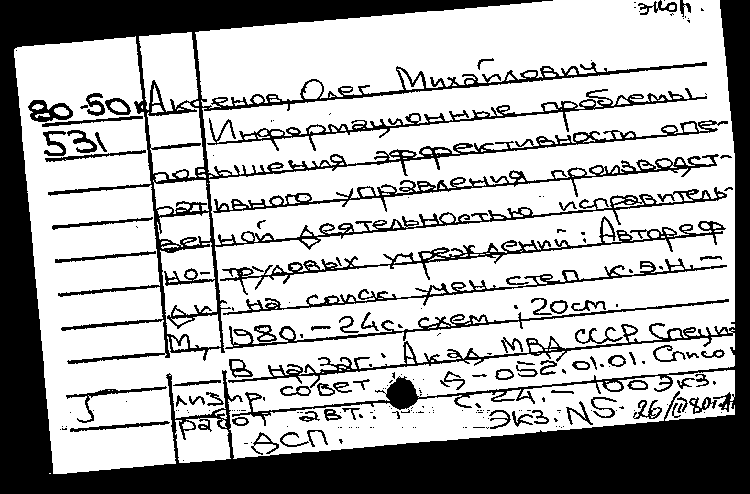 экон.
80-50к Аксенов, Олег Михайлович.
531 Информационные проблемы
повышения эффективности опе-
ративного управления производст-
венной деятельностью исправитель-
но-трудовых учреждений: Автореф
дис. на соиск. учен. степ к.э.н. –
М., 1980. – 24с., схем. ; 20см.
В надзаг.: Акад. МВД СССР. Специа
лизир. совет Д-052.01.01. Список
работ авт.: с. 24. – 100 экз.
ДСП. ЭКЗ. N5.